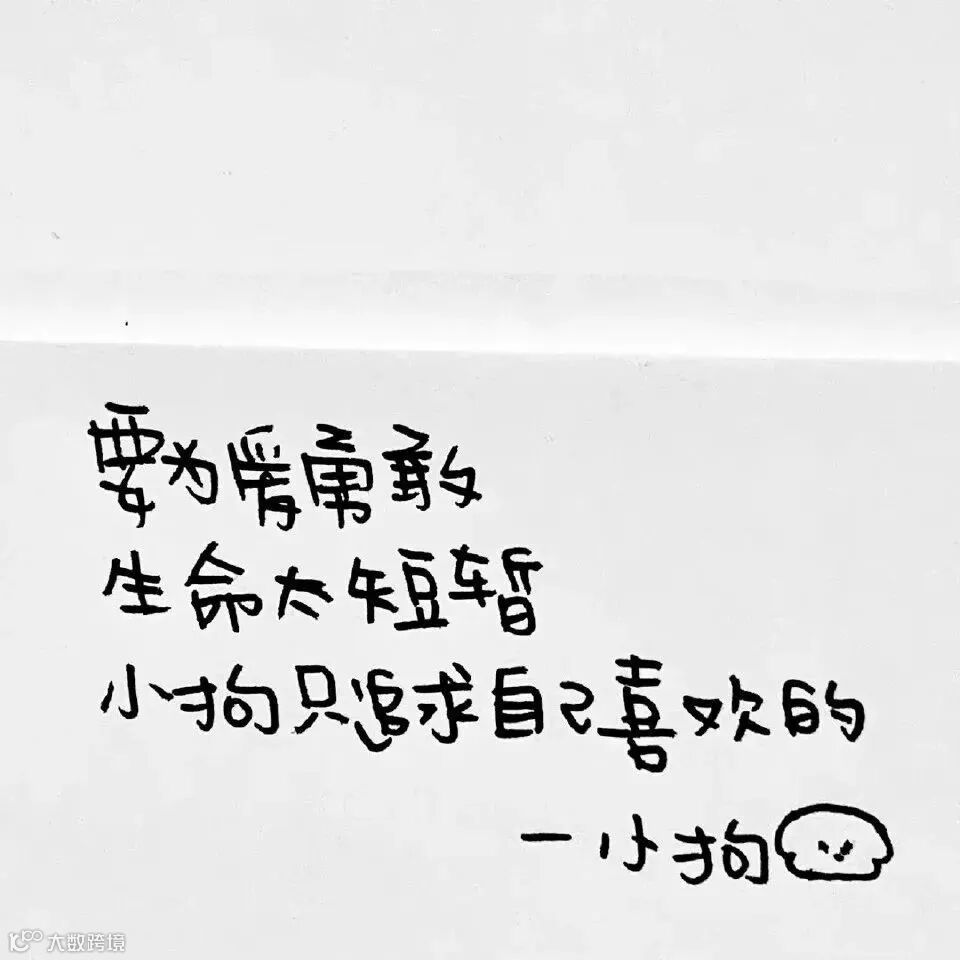 要为爱勇敢
生命太短暂
小狗只追求自己喜欢的
一小狗
大数跨境